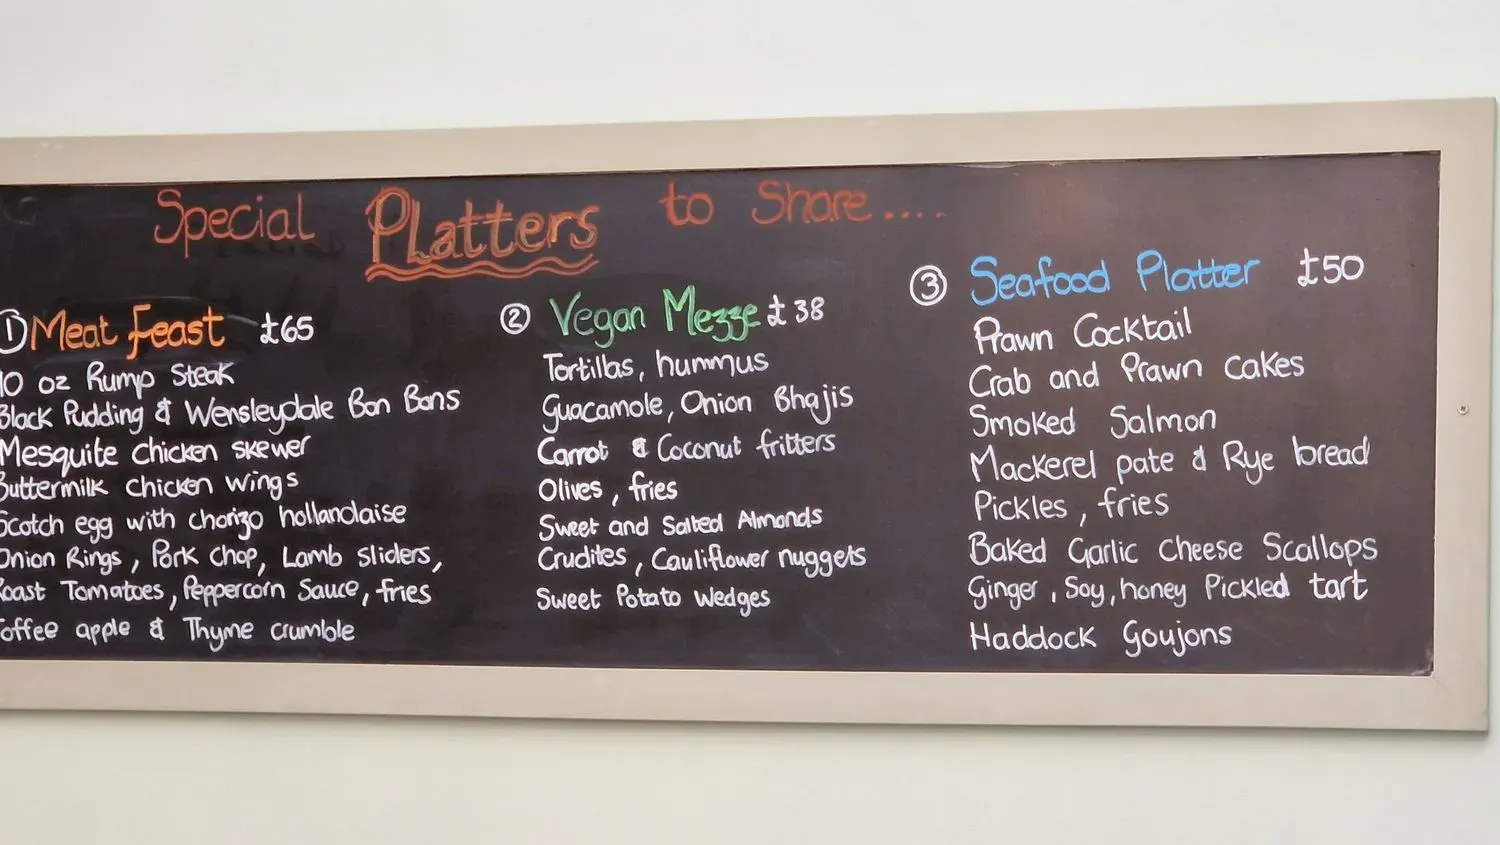 Special Platters to Share....
① Meat Feast £65
10 oz Rump Steak
Black Pudding & Wensleydale Bon Bons
Mesquite chicken skewer
Buttermilk chicken wings
Scotch egg with chorizo hollandaise
Onion Rings, Pork Chop, Lamb Sliders,
Roast Tomatoes, Peppercorn Sauce, fries
Toffee apple & Thyme crumble
② Vegan Mezze £38
Tortillas, hummus
Guacamole, Onion Bhajis
Carrot & Coconut fritters
Olives, fries
Sweet and Salted Almonds
Crudites, Cauliflower nuggets
Sweet Potato Wedges
③ Seafood Platter £50
Prawn Cocktail
Crab and Prawn cakes
Smoked Salmon
Mackerel pate & Rye bread
Pickles, fries
Baked Garlic Cheese Scallops
Ginger, Soy, honey Pickled tart
Haddock Goujons